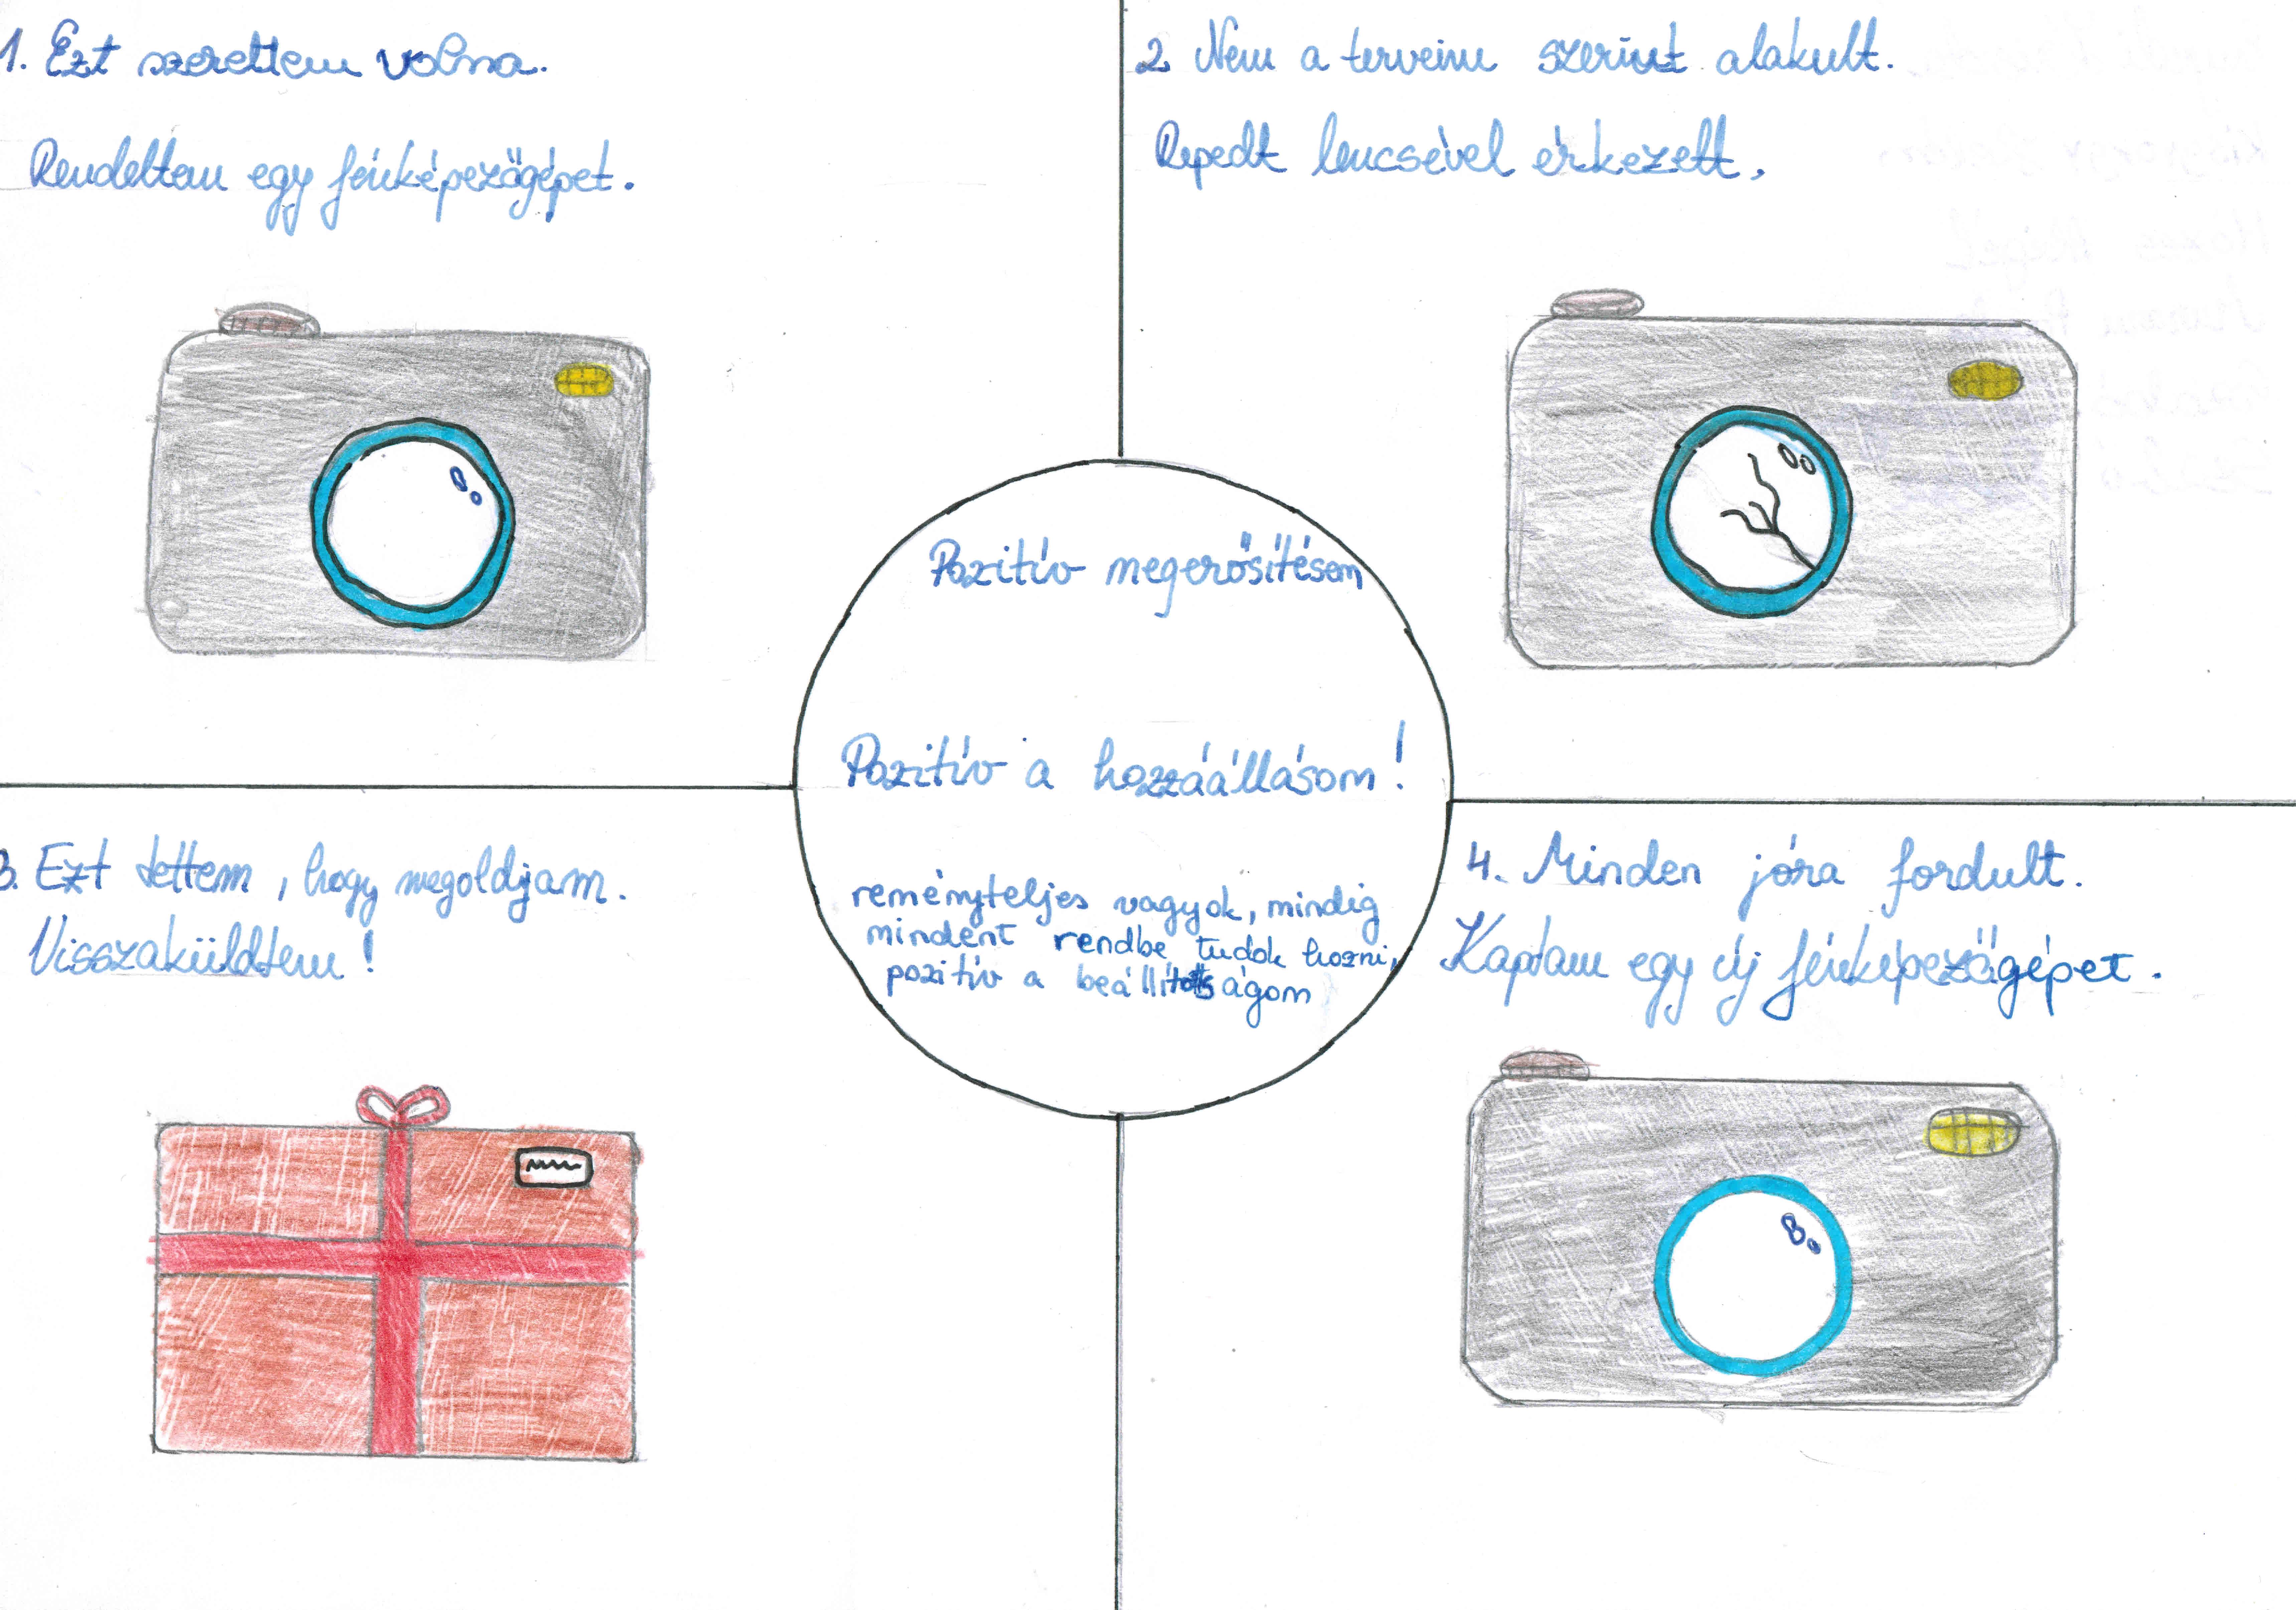 1. Ezt szerettem volna.
Rendeltem egy fényképezőgépet.
2. Nem a terveim szerint alakult.
Repedt lencsével érkezett.
Pozitív megerősítésem
Pozitív a hozzáállásom!
reményteljes vagyok, mindig
mindent rendbe tudok hozni,
pozitív a beállítottságom
3. Ezt tettem, hogy megoldjam.
Visszaküldtem!
4. Minden jóra fordult.
Kaptam egy új fényképezőgépet.